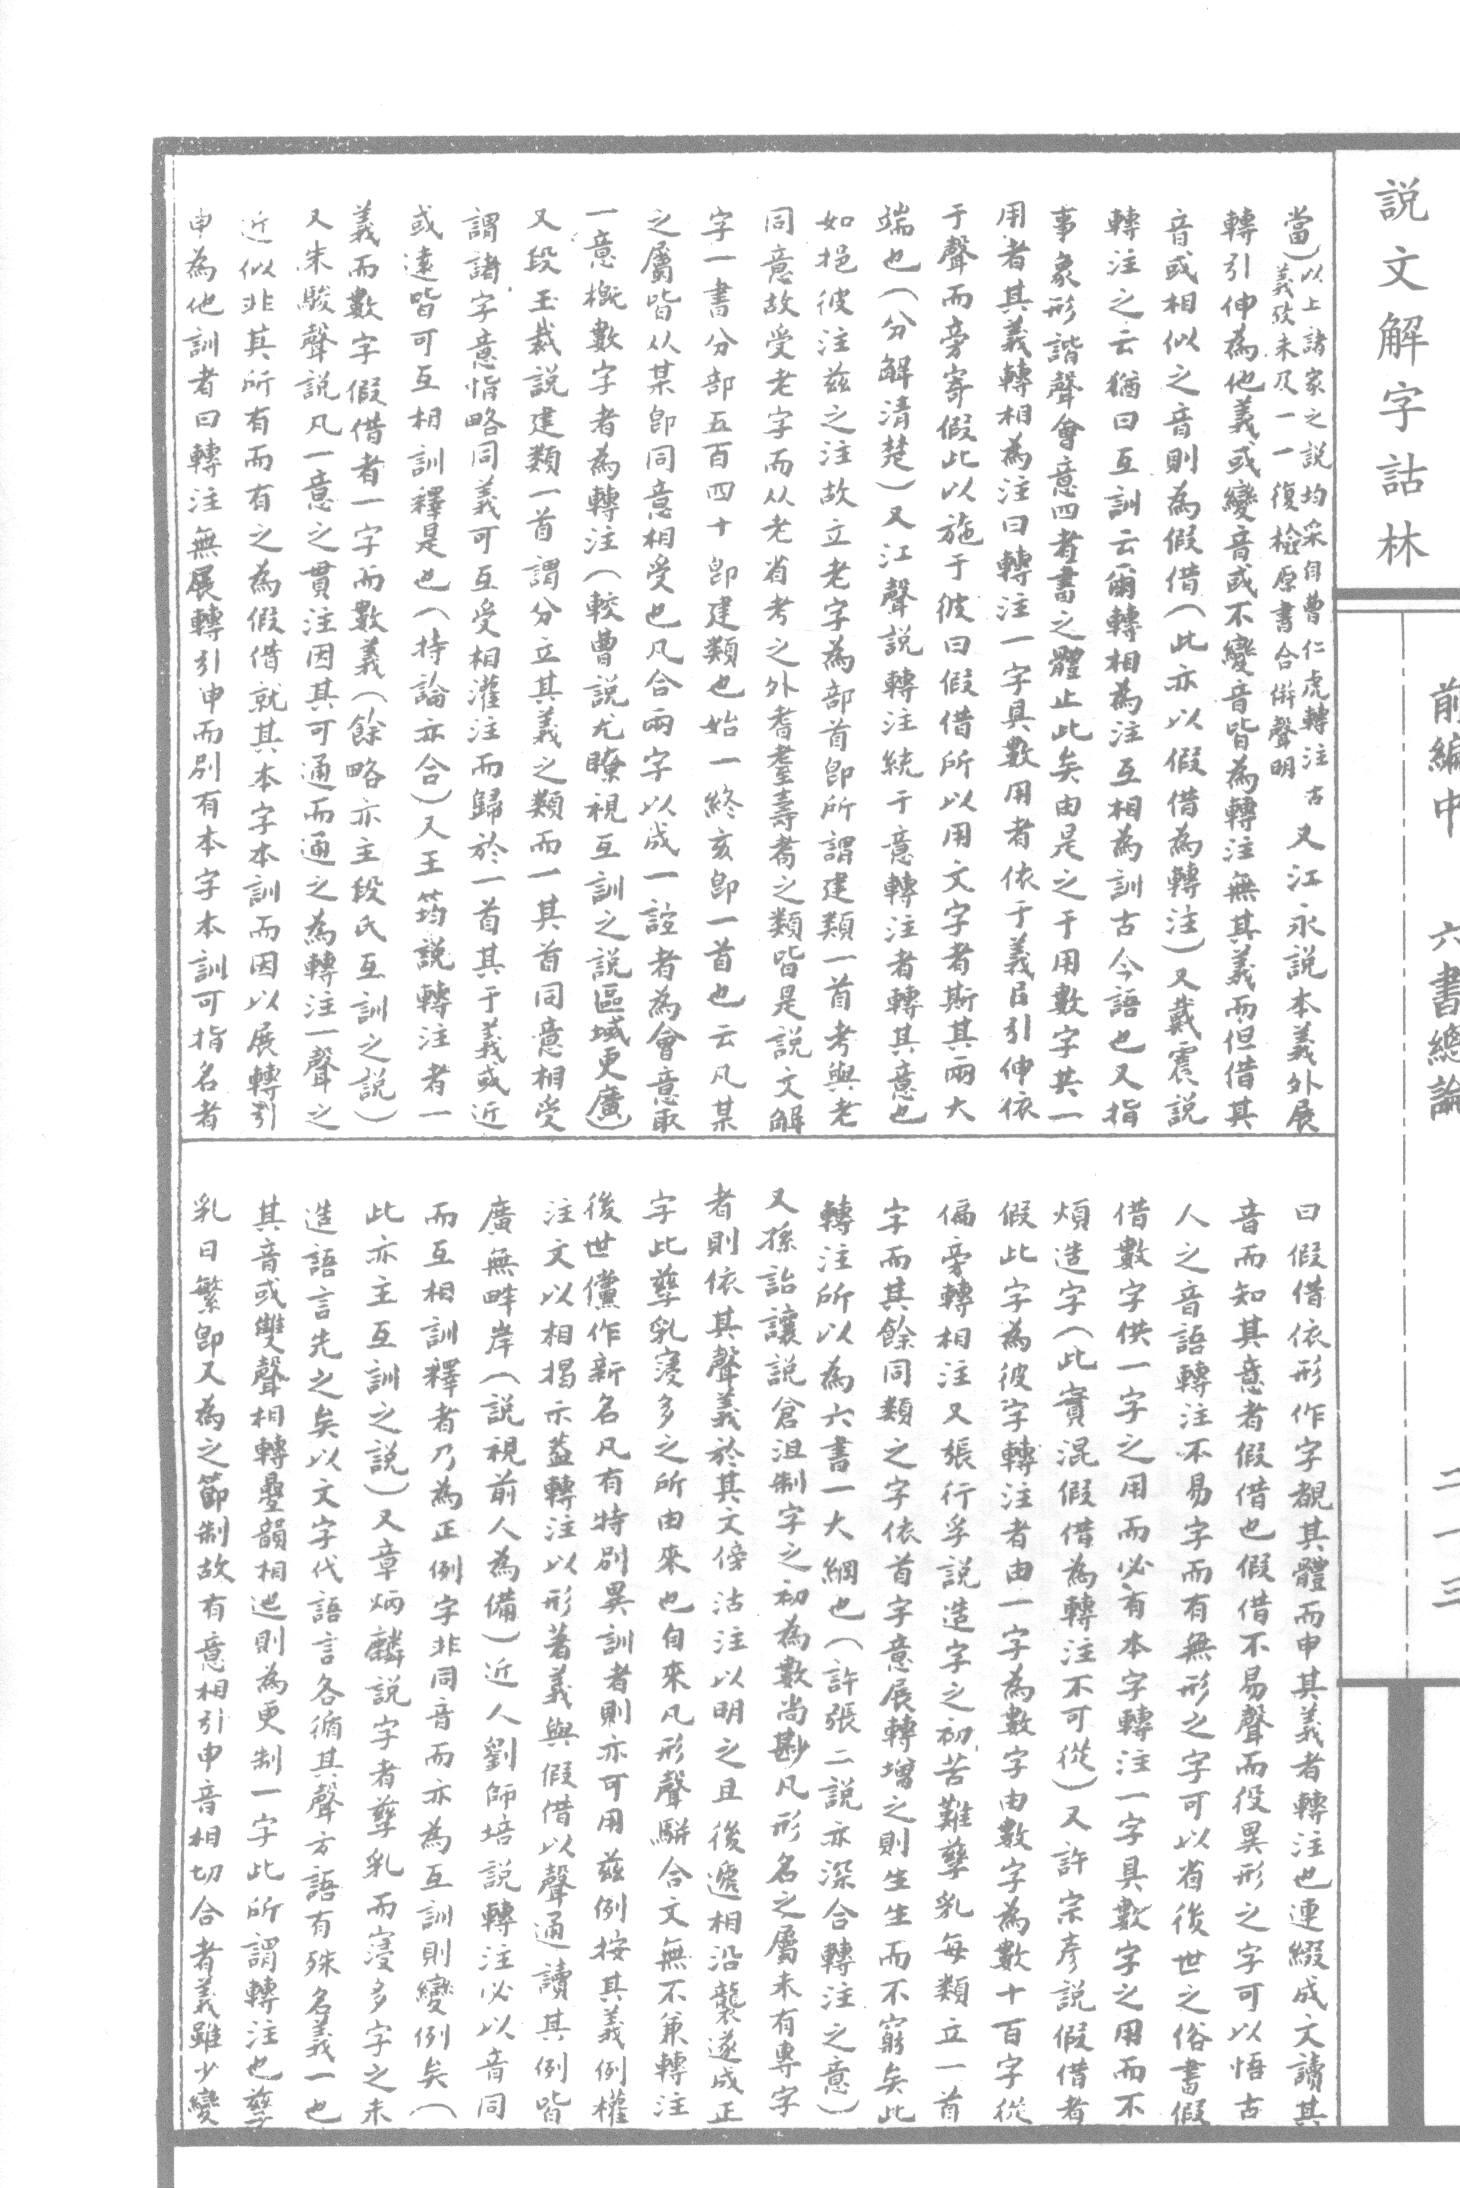 説文解字詁林
前編中　六書總論　二一三
當）以上諸家之説均采自曹仁虎轉注古
義攷未及一一復檢原書合併聲明
又江永説本義外展
轉引伸為他義或變音或不變音皆為轉注無其義而但借其
音或相似之音則為假借（此亦以假借為轉注）又戴震説
轉注之云猶曰互訓云爾轉相為注互相為訓古今語也又指
事象形諧聲會意四者書之體止此矣由是之于用數字共一
用者其義轉相為注曰轉注一字具數用者依于義以引伸依
于聲而旁寄假此以施于彼曰假借所以用文字者斯其兩大
端也（分解清楚）又江聲説轉注統于意轉注者轉其意也
如挹彼注茲之注故立老字為部首即所謂建類一首考與老
同意故受老字而从老省考之外耆耋壽耇之類皆是説文解
字一書分部五百四十即建類也始一終亥即一首也云凡某
之屬皆从某即同意相受也凡合兩字以成一誼者為會意取
一意概數字者為轉注（較曹説尤瞭視互訓之説區域更廣）
又段玉裁説建類一首謂分立其義之類而一其首同意相受
謂諸字意恉略同義可互受相灌注而歸於一首其于義或近
或遠皆可互相訓釋是也（持論亦合）又王筠説轉注者一
義而數字假借者一字而數義（餘略亦主段氏互訓之説）
又朱駿聲説凡一意之貫注因其可通而通之為轉注一聲之
近似非其所有而有之為假借就其本字本訓而因以展轉引
申為他訓者曰轉注無展轉引申而別有本字本訓可指名者
曰假借依形作字覩其體而申其義者轉注也連綴成文讀其
音而知其意者假借也假借不易聲而役異形之字可以悟古
人之音語轉注不易字而有無形之字可以省後世之俗書假
借數字供一字之用而必有本字轉注一字具數字之用而不
煩造字（此實混假借為轉注不可從）又許宗彥説假借者
假此字為彼字轉注者由一字為數字由數字為數十百字從
偏旁轉相注又張行孚説造字之初苦難孳乳每類立一首
字而其餘同類之字依首字意展轉增之則生生而不窮矣此
轉注所以為六書一大綱也（許張二説亦深合轉注之意）
又孫詒讓説倉沮制字之初為數尚尠凡形名之屬未有專字
者則依其聲義於其文傍沽注以明之且後遞相沿襲遂成正
字此孳乳寖多之所由來也自來凡形聲駢合文無不兼轉注
後世儻作新名凡有特別異訓者則亦可用茲例按其義例權
注文以相揭示蓋轉注以形著義與假借以聲通讀其例皆
廣無畔岸（説視前人為備）近人劉師培説轉注必以音同
而互相訓釋者乃為正例字非同音而亦為互訓則變例矣（
此亦主互訓之説）又章炳麟説字者孳乳而寖多字之未
造語言先之矣以文字代語言各循其聲方語有殊名義一也
其音或雙聲相轉疊韻相迆則為更制一字此所謂轉注也孳
乳日繁即又為之節制故有意相引申音相切合者義雖少變